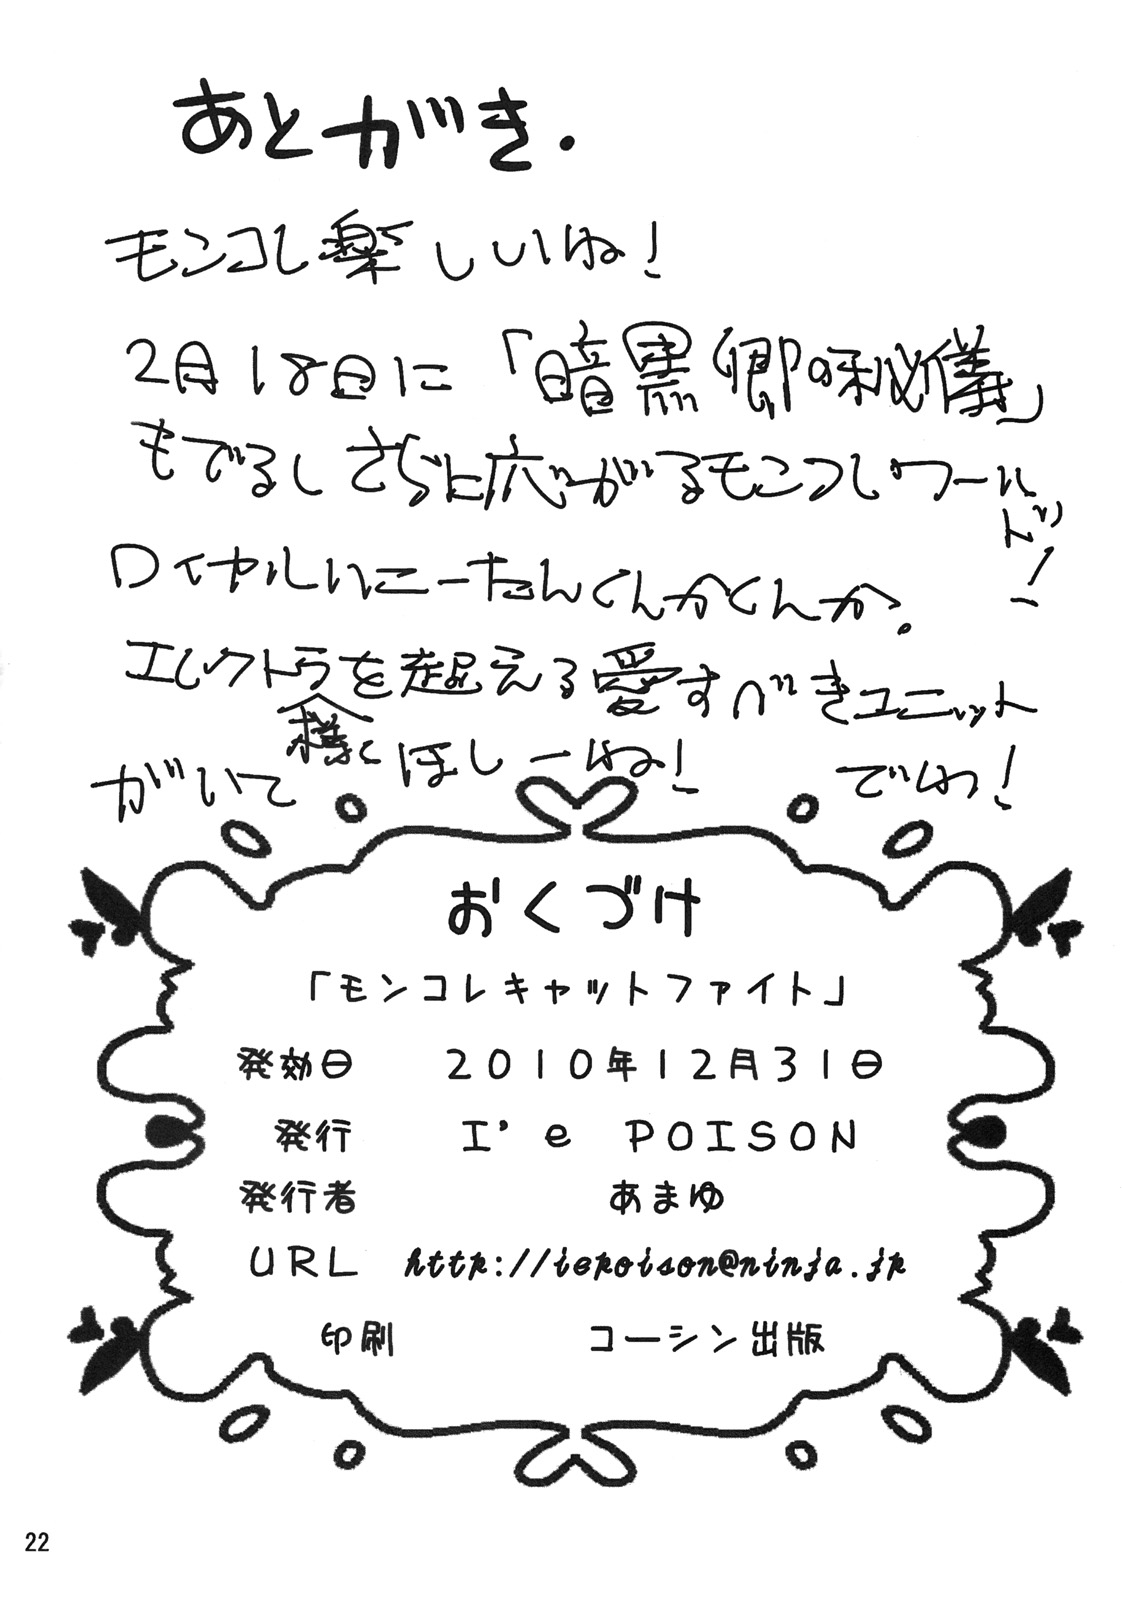 あとがき.
モンコレ楽しいね!
2月18日に「暗黒卿の秘儀」
もでるしさらに広がるモンコレワールドッ!
ロイヤルハニーたんくんかくんか。
エレクトラ様を超える愛すべきユニット
がいてほしーね! でわ!
おくづけ
「モンコレキャットファイト」
発効日 2010年12月31日
発行 I'e POISON
発行者 あまゆ
URL http://iepoison@ninja.jp
印刷 コーシン出版
22